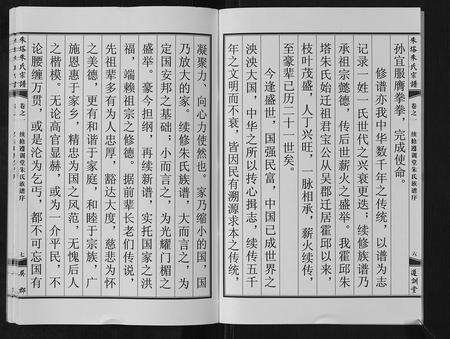 朱塔朱氏宗譜
卷之一
續修遵訓堂朱氏族譜序
六
遵訓堂
孙宜服膺拳拳，完成使命。
修谱亦我中华数千年之传统，以谱为志
记录一姓一氏世代之兴衰更迭；续修族谱乃
承祖宗懿德，传后世薪火之盛举。我霍邱朱
塔朱氏始迁祖君宝公从吴郡迁居霍邱以来，
枝叶茂盛，人丁兴旺，一脉相承，薪火续传，
至豪辈已历二十一世矣。
今逢盛世，国强民富，中国已成世界之
泱泱大国，中华之所以抟心揖志，续传五千
年之文明而不衰，皆因民有溯源求本之传统，
凝聚力、向心力使然也。家乃缩小的国，国
乃放大的家。续修朱氏族谱，大而言之，为
定国安邦之基础，小而言之，为光耀门楣之
盛举。豪今担纲，再续新谱，实托国家之洪
福，端赖祖宗之修德。据前辈长老们传说，
先祖辈多有为人忠厚，豁达大度，慈悲为怀
之美德，更有和谐于家庭，和睦于宗族，广
施恩惠于家乡，精忠为国之风范，无愧后人
之楷模。无论高官显赫，或为一介平民，不
论腰缠万贯，或是沦为乞丐，都不可忘国有
朱塔朱氏宗譜
卷之一
續修遵訓堂朱氏族譜序
七
吳郡